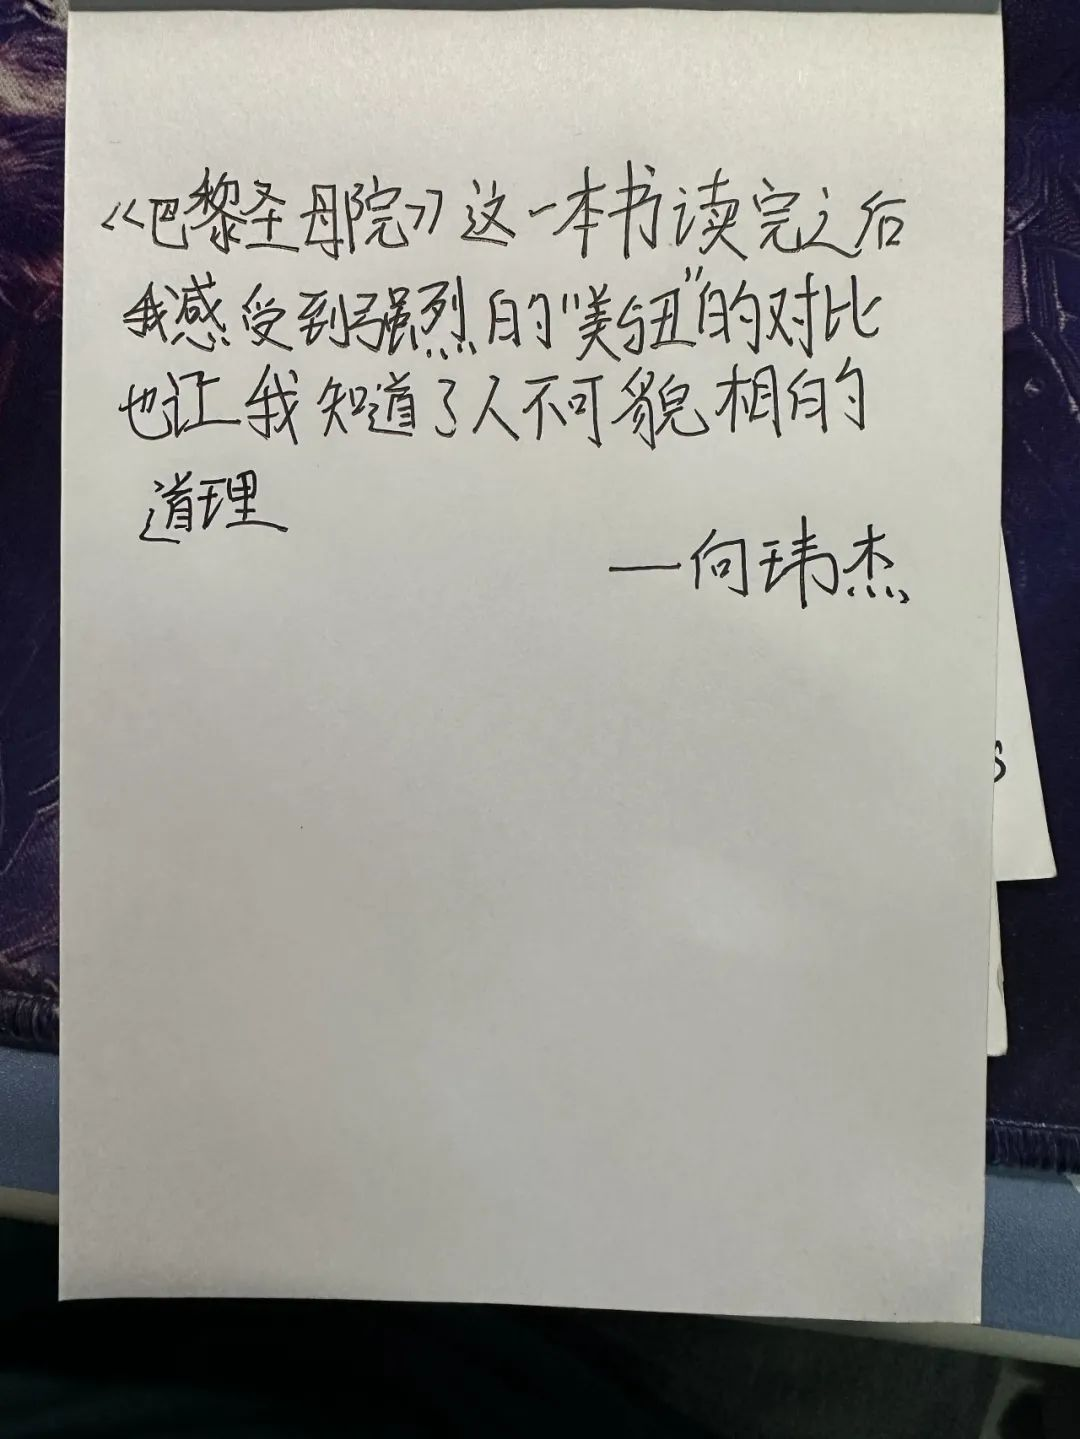 《巴黎圣母院》这一本书读完之后
我感受到强烈的“美与丑”的对比
也让我知道了人不可貌相的
道理
—向玮杰